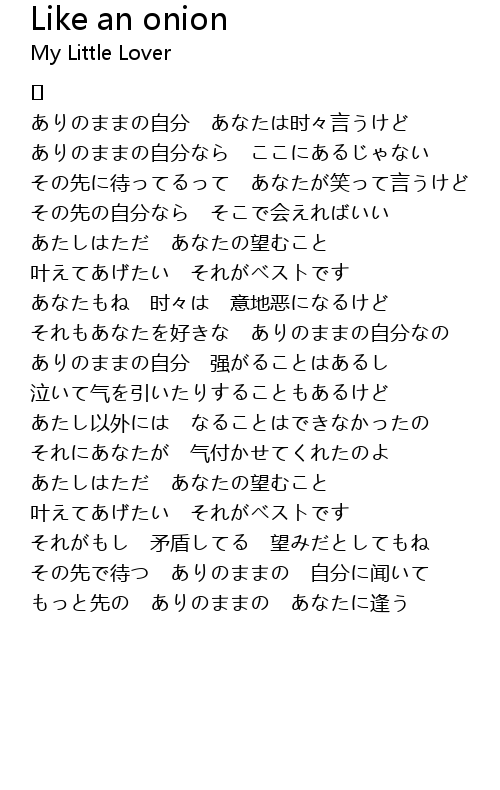 Like an onion
My Little Lover
[]
ありのままの自分　あなたは时々言うけど
ありのままの自分なら　ここにあるじゃない
その先に待ってるって　あなたが笑って言うけど
その先の自分なら　そこで会えればいい
あたしはただ　あなたの望むこと
叶えてあげたい　それがベストです
あなたもね　时々は　意地恶になるけど
それもあなたを好きな　ありのままの自分なの
ありのままの自分　强がることはあるし
泣いて气を引いたりすることもあるけど
あたし以外には　なることはできなかったの
それにあなたが　气付かせてくれたのよ
あたしはただ　あなたの望むこと
叶えてあげたい　それがベストです
それがもし　矛盾してる　望みだとしてもね
その先で待つ　ありのままの　自分に闻いて
もっと先の　ありのままの　あなたに逢う